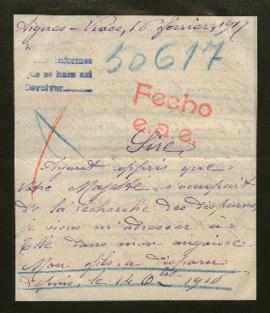 Aigues-Vives, 16 février, 1917
informes
que se haga así
Devolver
50617
Fecho
e.a.e.
Sire,
Ayant appris que
Votre Majesté s'occupait
de la recherche des disparus
je viens m'adresser à
Elle dans mon angoisse.
Mon fils, a disparu
depuis, le 14 1918